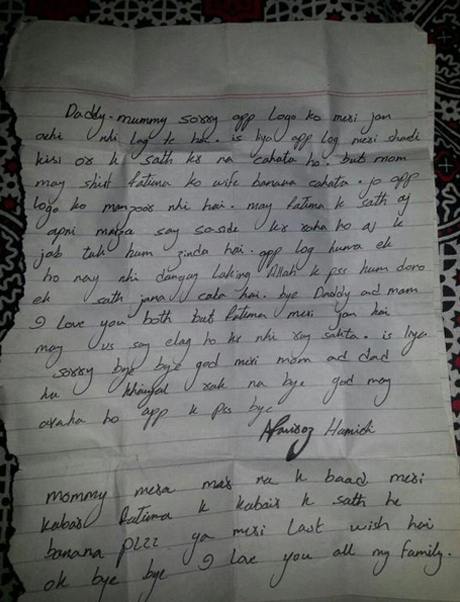 Daddy. mummy sorry app logo ko meri jan
achi nhi lag te hai. is liya app log meri shadi
kisi or k sath kr na cahata ho. but mom
may shirf fatima ko wife banana cahata. jo app
logo ko manzoor nhi hai. may fatima k sath aj
apni marza say kr raha ho aj k
jab tak hum zinda hai. app log humra ek
ho nay nhi dangay laking Allah k pss hum doro
ek sath jana caha hai. bye Daddy ad mom
I love you both but fatima meri jan hai
may us say elag ho kr nhi ray sakta. is liya
sorry bye bye god meri mom ad dad
ka khayal rak na bye god may
araha ho app k pss bye
Hamidi
mommy mera mar na k baad meri
kabar fatima k kabair k sath he
banana plzz ya meri Last wish hai
ok bye bye I love you all my family.